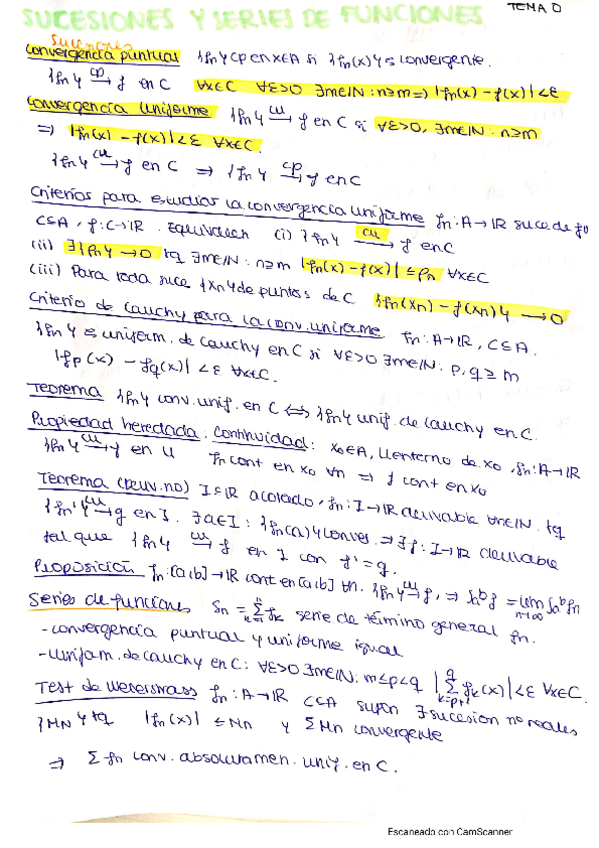 SUCESIONES Y SERIES DE FUNCIONES TEMA 0
Sucesiones
Convergencia puntual {fn} cp en x∈A si {fn(x)} es convergente.
{fn} cp→ f en C ∀x∈C ∀ε>0 ∃m∈IN : n≥m => |fn(x) - f(x)| < ε
Convergencia Uniforme {fn} cu→ f en C si ∀ε>0, ∃m∈IN : n≥m
=> |fn(x) - f(x)| < ε ∀x∈C.
{fn} cu→ f en C => {fn} cp→ f en C
Criterios para estudiar la convergencia uniforme fn: A→IR suce de fu
C⊆A, f: C→IR. Equivalen (i) {fn} cu→ f en C
(ii) ∃{ρn} → 0 tq ∃m∈IN : n≥m |fn(x) - f(x)| ≤ ρn ∀x∈C
(iii) Para toda suce {xn} de puntos de C {fn(xn) - f(xn)} → 0
Criterio de Cauchy para la conv. uniforme fn: A→IR, C⊆A.
{fn} es uniform. de Cauchy en C si ∀ε>0 ∃m∈IN : p, q ≥ m
|fp(x) - fq(x)| < ε ∀x∈C.
Teorema {fn} conv. unif. en C <=> {fn} unif. de Cauchy en C.
Propiedad heredada. Continuidad: x0∈A, U entorno de x0, fn: A→IR
{fn} cu→ f en U fn cont en x0 ∀n => f cont en x0
Teorema (Deriv. no) I⊆IR acotado, fn: I→IR derivable ∀n∈IN. tq
{fn'} cu→ g en I. ∃a∈I : {fn(a)} conver. => ∃f: I→IR derivable
tal que {fn} cu→ f en I con f' = g.
Proposición fn: [a,b]→IR cont en [a,b] ∀n. {fn} cu→ f, => ∫ab f = lim n→∞ ∫ab fn
Series de funciones Sn = Σ k=1 n fk serie de término general fn.
- convergencia puntual y uniforme igual
- Unifom. de Cauchy en C: ∀ε>0 ∃m∈IN: m≤p<q |Σ k=p+1 q fk(x)| < ε ∀x∈C.
Test de Weierstrass fn: A→IR C⊆A supon ∃ sucesion no reales
{Mn} tq |fn(x)| ≤ Mn y ΣMn convergente
=> Σ fn conv. absolutamen. unif. en C.
Escaneado con CamScanner